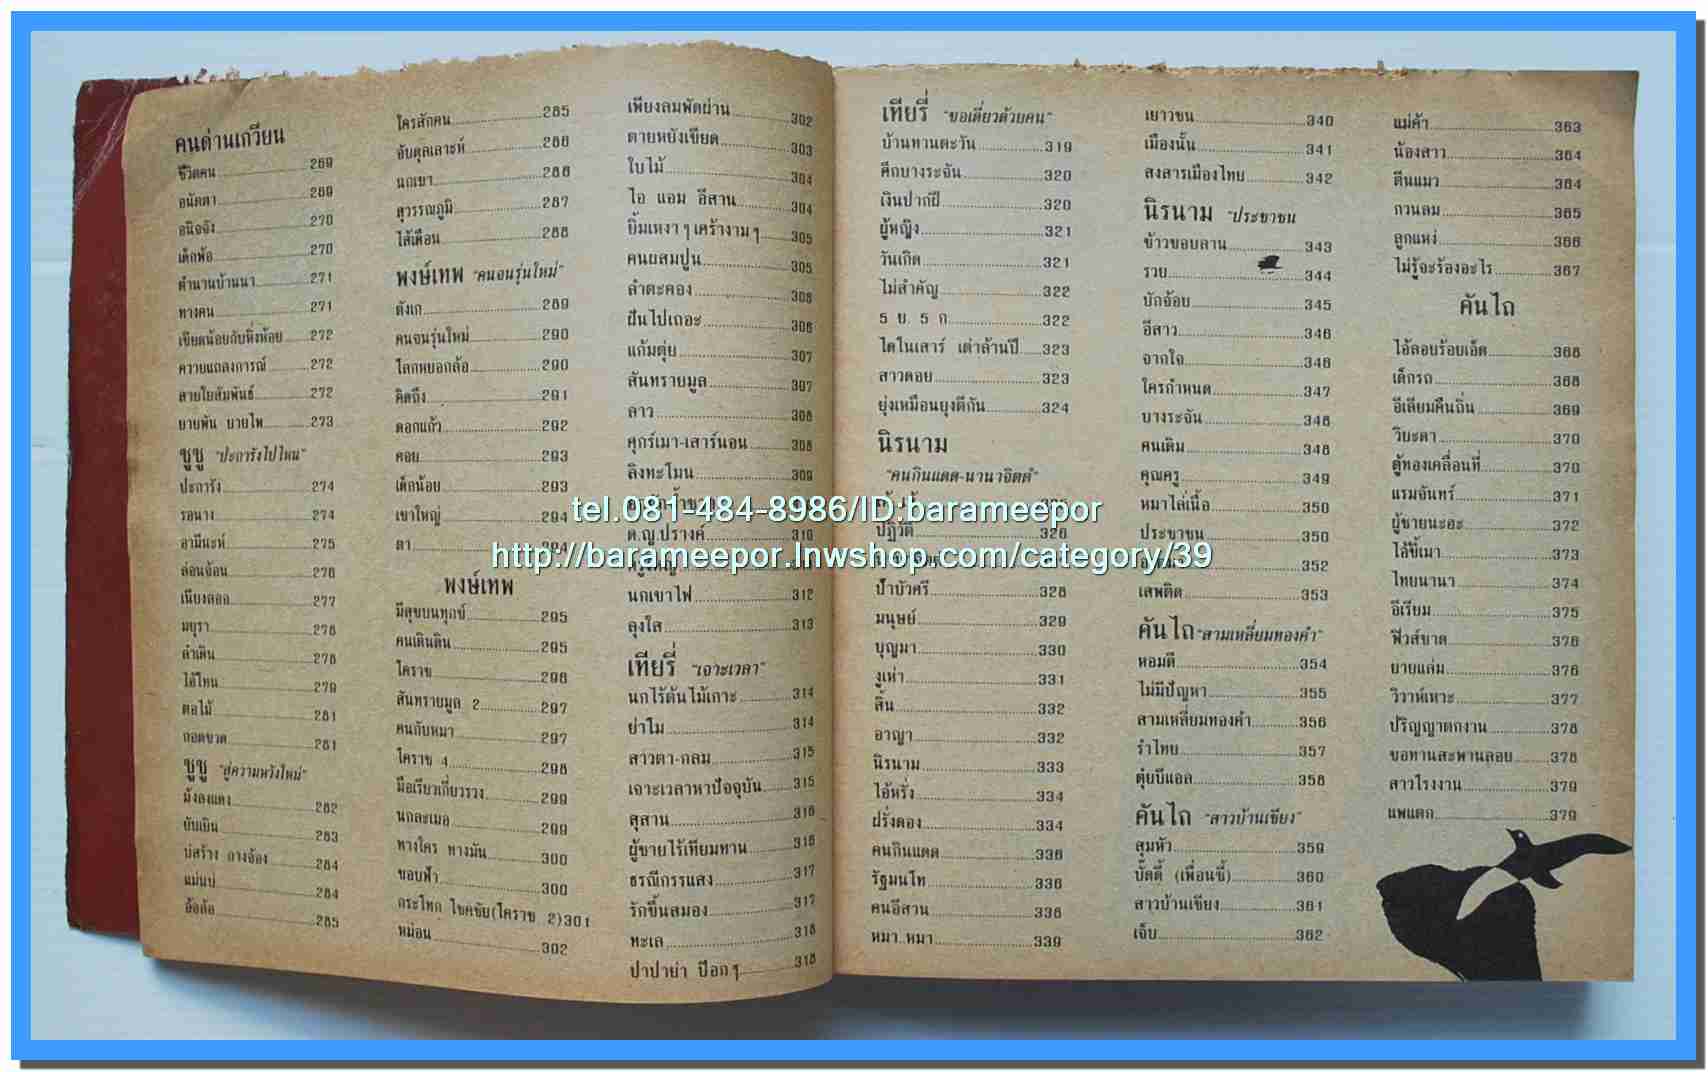 คนด่านเกวียน
ชีวิตคน 269
อนัตตา 269
อนิจจัง 270
เด็กพ้อ 270
ตำนานบ้านนา 271
ทางคน 271
เขียดน้อยกับหิ่งห้อย 272
ควายแถลงการณ์ 272
สายใยสัมพันธ์ 272
ยายพัน ยายไพ 273
ซูซู "ปะการังไปไหน"
ปะการัง 274
รอนาง 274
อามีนะห์ 275
ล่อนจ้อน 276
เนียงตออ 277
มยุรา 278
ลำเดิน 278
ไอ้โหน 279
ตอไม้ 281
ถอดขวด 281
ซูซู "สู่ความหวังใหม่"
มังลงแดง 282
ยับเยิน 283
บ่สร้าง กางจ้อง 284
แม่นบ่ 284
อ้อล้อ 285
ใครสักคน 285
อับดุลเลาะห์ 286
นกเขา 286
สุวรรณภูมิ 287
ไส้เดือน 288
พงษ์เทพ "คนจนรุ่นใหม่"
ตังเก 289
คนจนรุ่นใหม่ 290
โลกหยอกล้อ 290
คิดถึง 291
ดอกแก้ว 292
คอย 293
เด็กน้อย 293
เขาใหญ่ 294
ตา 294
พงษ์เทพ
มีสุขบนทุกข์ 295
คนเดินดิน 295
โคราช 296
สันทรายมูล 2 297
คนกับหมา 297
โคราช 4 298
มือเรียวเกี่ยวรวง 299
นกละเมอ 299
ทางใคร ทางมัน 300
ขอบฟ้า 300
กระโทก โชคชัย(โคราช 2) 301
หม่อน 302
เพียงลมพัดผ่าน 302
ตายหยังเขียด 303
ใบไม้ 304
ไอ แอม อีสาน 304
ยิ้มเหงา ๆ เศร้างาม ๆ 305
คนผสมปูน 305
ลำตะคอง 306
ฝันไปเถอะ 306
แก้มตุ่ย 307
สันทรายมูล 307
ลาว 308
ศุกร์เมา-เสาร์นอน 308
ลิงทะโมน 309
ด.ญ.ปรางค์ 310
นกเขาไฟ 312
ลุงใส 313
เทียรี่ "เจาะเวลา"
นกไร้ต้นไม้เกาะ 314
ย่าโม 314
สาวตา-กลม 315
เจาะเวลาหาปัจจุบัน 315
สุสาน 316
ผู้ชายไร้เทียมทาน 316
ธรณีกรรแสง 317
รักขึ้นสมอง 317
ทะเล 318
ปาปาย่า ป๊อกๆ 318
เทียรี่ "ขอเดี่ยวด้วยคน"
บ้านทานตะวัน 319
ศึกบางระจัน 320
เงินปากผี 320
ผู้หญิง 321
วันเกิด 321
ไม่สำคัญ 322
5 ย. 5 ก. 322
ไดโนเสาร์ เต่าล้านปี 323
สาวดอย 323
ยุ่งเหมือนยุงตีกัน 324
นิรนาม
"คนกินแดด-นานาจิตตํ"
ปฏิวัติ 326
ป้าบัวศรี 328
มนุษย์ 329
บุญมา 330
งูเห่า 331
สิ้น 332
อาญา 332
นิรนาม 333
ไอ้หรั่ง 334
ฝรั่งดอง 334
คนกินแดด 336
รัฐมนโท 336
คนอีสาน 338
หมา..หมา 339
เยาวชน 340
เมืองนั้น 341
สงสารเมืองไทย 342
นิรนาม "ประชาชน
ข้าวขอบลาน 343
รวย 344
บักจ้อย 345
อีสาว 346
จากใจ 346
ใครกำหนด 347
บางระจัน 348
คนเดิม 348
คุณครู 349
หมาไล่เนื้อ 350
ประชาชน 350
352
เสพติด 353
คันไถ "สามเหลี่ยมทองคำ"
หอมดี 354
ไม่มีปัญหา 355
สามเหลี่ยมทองคำ 356
รำไทย 357
ตุ๋ยบีแอล 358
คันไถ "สาวบ้านเชียง"
สุมหัว 359
บั๊ดดี้ (เพื่อนซี้) 360
สาวบ้านเชียง 361
เจ็บ 362
แม่ค้า 363
น้องสาว 364
ตีนแมว 364
กวนลม 365
ลูกแหง่ 366
ไม่รู้จะร้องอะไร 367
คันไถ
ไอ้ลอบร้อยเอ็ด 368
เด็กรถ 368
อีเลียมคืนถิ่น 369
วิบะดา 370
ตู้ทองเคลื่อนที่ 370
แรมจันทร์ 371
ผู้ชายนะฮะ 372
ไอ้ขี้เมา 373
ไทยนานา 374
อีเรียม 375
ฟิวส์ขาด 376
ยายแล่ม 376
วิวาห์เหาะ 377
ปริญญาตกงาน 378
ขอทานสะพานลอย 378
สาวโรงงาน 379
แพแตก 379
tel.081-484-8986/ID:barameepor
http://barameepor.lnwshop.com/category/39